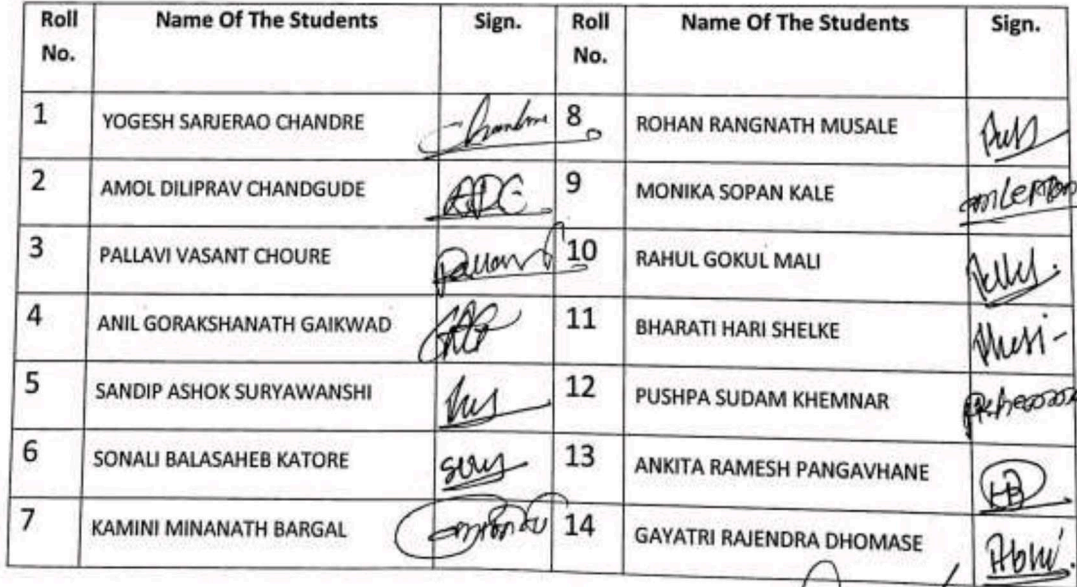 Roll No. Name Of The Students Sign. Roll No. Name Of The Students Sign.
1 YOGESH SARJERAO CHANDRE 8 ROHAN RANGNATH MUSALE
2 AMOL DILIPRAV CHANDGUDE ADC 9 MONIKA SOPAN KALE
3 PALLAVI VASANT CHOURE 10 RAHUL GOKUL MALI
4 ANIL GORAKSHANATH GAIKWAD 11 BHARATI HARI SHELKE
5 SANDIP ASHOK SURYAWANSHI 12 PUSHPA SUDAM KHEMNAR
6 SONALI BALASAHEB KATORE 13 ANKITA RAMESH PANGAVHANE
7 KAMINI MINANATH BARGAL 14 GAYATRI RAJENDRA DHOMASE